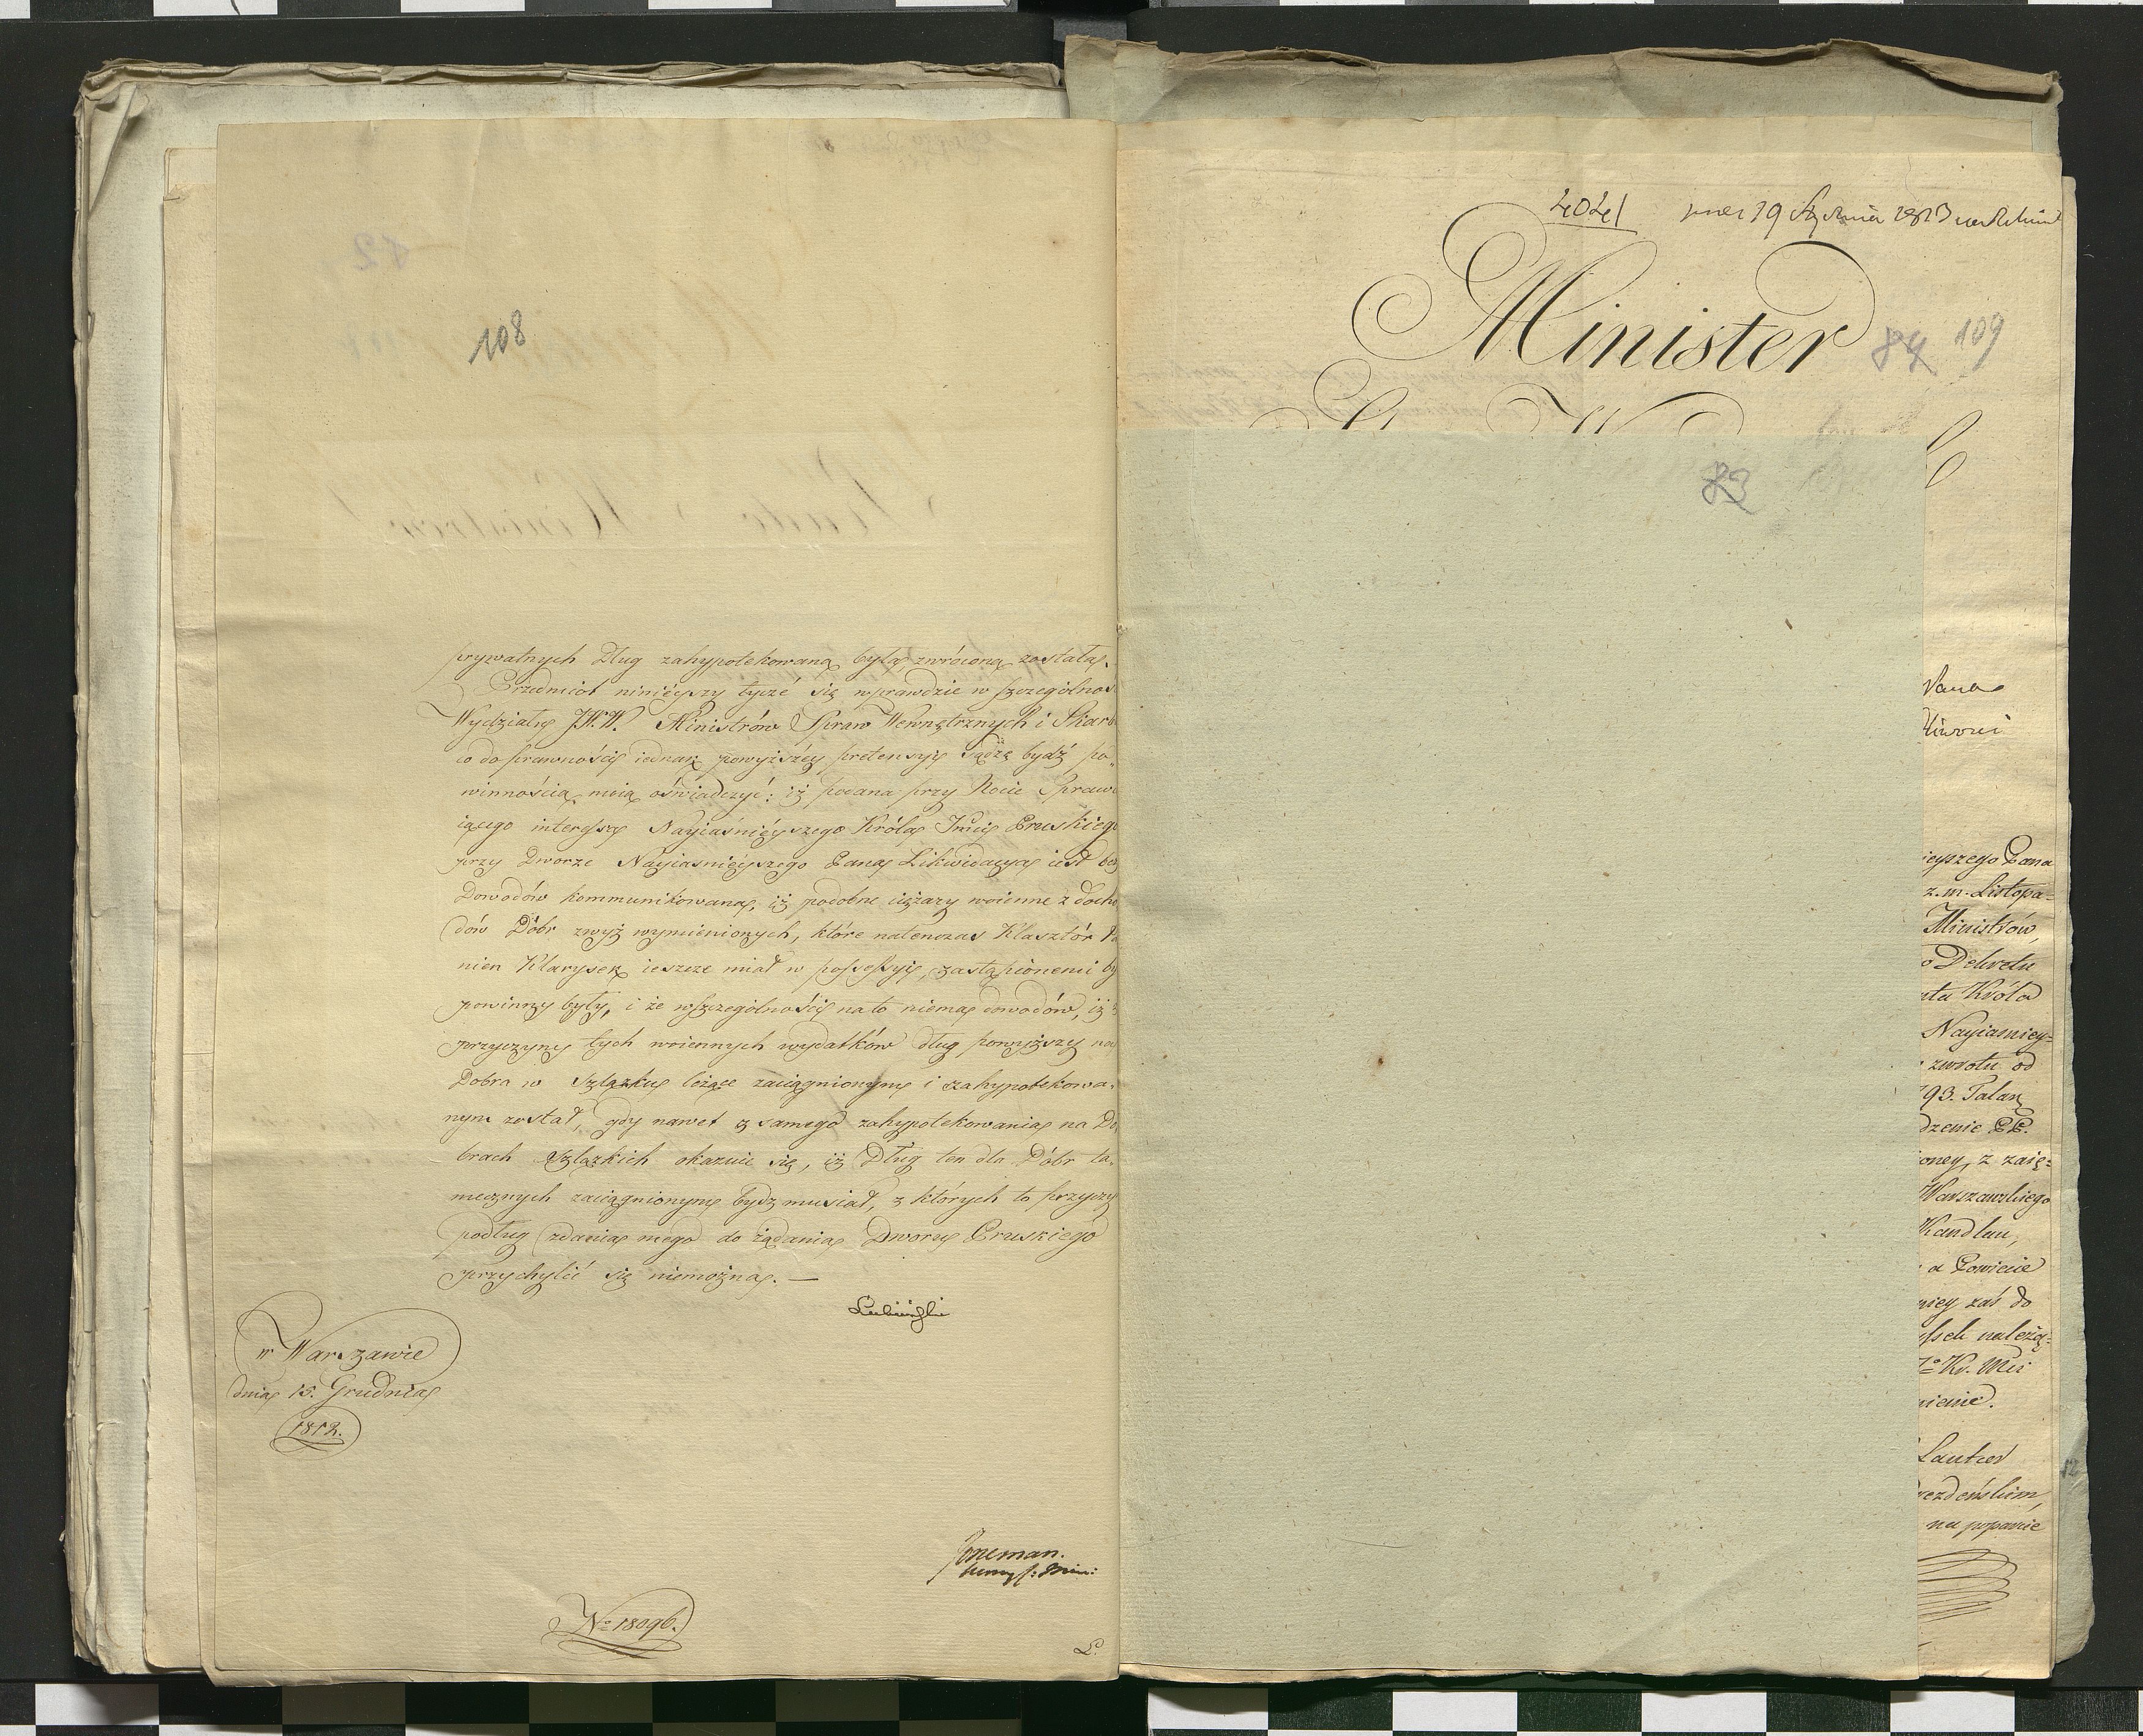 108
prywatnych Dług zahypotekowana była, zwrócona została.
Przedmiot ninieyszy tycze się wprawdzie w szczególnoś
Wydziału JW. W. Ministrów Spraw Wewnętrznych i Skarb
co do prawności iednak powyższéy pretensyi sądzę bydź po„
winnością moią oświadczyć: iż podana przy Nocie Sprawu
iącego interessa Nayiaśnieyszego Króla Jmci Pruskiego
przy Dworze Nayiaśnieyszego Pana Likwidacya iest bez
Dowodów kommunikowana, iż podobne ciężary woienne z docho
dów Dóbr zwyż wymienionych, które natenczas Klasztór Pa
nien Klarysek ieszcze miał w possessyi, zastąpionemi by
powinny były, i że wszczególności na to niema dowodów, iż z
przyczyny tych woiennych wydatków dług powyższy na
Dobra w Szląsku leżące zaciągnionym i zahypotekowa„
nym został, gdy nawet z samego zahypotekowania na Do
brach Szląskich okazuie się, iż Dług ten dla Dóbr ta„
mecznych zaciągnionym bydz musiał, z których to przyczy
podług zdania mego do żądania Dworu Pruskiego
przychylić się niemożna. —
Łubieński
w Warszawie
dnia 15. Grudnia
1812.
No 18096.
L.
4041 1813
Minister
84 109
83
Pana
ieyszego Pana
z. m. Listopa=
Ministrów,
o Dekretu
Króla
Nayiasniey=
zwrotu od
93. Talar
dzenie PP.
oney, z zaię=
Warszawskiego
Kandlau,
a Powiecie
niey zaś do
należą=
nienie.
Lautier
rezdeńskim,
na poparcie